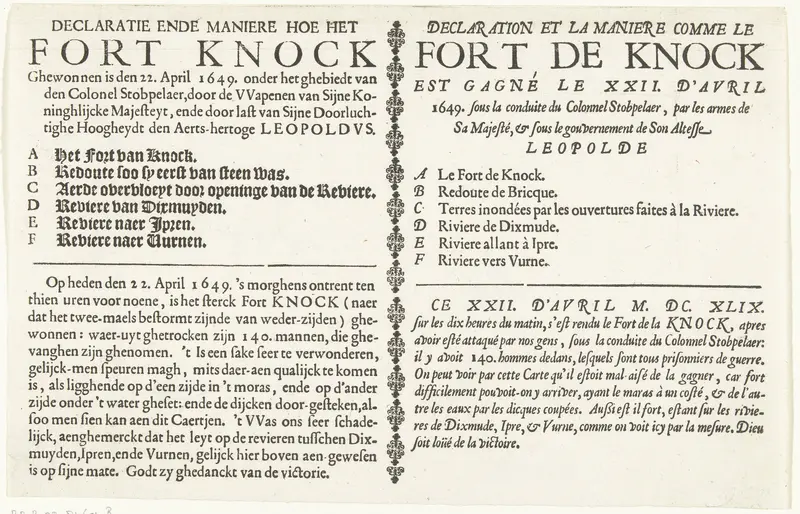 DECLARATIE ENDE MANIERE HOE HET
FORT KNOCK
Ghewonnen is den 22. April 1649. onder het ghebiede van
den Colonel Stobpelaer, door de VVapenen van Sijne Ko-
ninghlijcke Majeſteyt, ende door laſt van Sijne Doorluch-
tighe Hoogheydt den Aerts-hertoge LEOPOLDVS.
A Het Fort van Knock.
B Redoute ſoo ſy eerſt van ſteen was.
C Aerde overvloeyt door openinge van de Reviere.
D Reviere van Dixmuyden.
E Reviere naer Jpren.
F Reviere naer Vurnen.
Op heden den 22. April 1649. 's morghens ontrent ten
thien uren voor noene, is het ſterck Fort KNOCK (naer
dat het twee-maels beſtormt zijnde van weder-zijden) ghe-
wonnen: waer-uyt ghetrocken zijn 140. mannen, die ghe-
vanghen zijn ghenomen. 't Is een ſake ſeer te verwonderen,
gelijck-men ſpeuren magh, mits daer-aen qualijck te komen
is, als ligghende op d'een zijde in 't moras, ende op d'ander
zijde onder 't water gheſet: ende de dijcken door-geſteken, al-
ſoo men ſien kan aen dit Caertjen. 't VVas ons ſeer ſchade-
lijck, aenghemerckt dat het leyt op de revieren tuſſchen Dix-
muyden, Ipren, ende Vurnen, gelijck hier boven aen-geweſen
is op ſijne mate. Godt zy ghedanckt van de victorie.
DECLARATION ET LA MANIERE COMME LE
FORT DE KNOCK
EST GAGNÉ LE XXII. D'AVRIL
1649. ſous la conduite du Colonnel Stobpelaer, par les armes de
Sa Majeſté, & ſous le gouvernement de Son Alteſſe
LEOPOLDE
A Le Fort de Knock.
B Redoute de Bricque.
C Terres inondées par les ouvertures faites à la Riviere.
D Riviere de Dixmude.
E Riviere allant à Ipre.
F Riviere vers Vurne.
CE XXII. D'AVRIL M. DC. XLIX.
ſur les dix heures du matin, s'eſt rendu le Fort de la KNOCK, apres
avoir eſté attaqué par nos gens, ſous la conduite du Colonnel Stobpelaer:
il y avoit 140. hommes dedans, leſquels ſont tous priſonniers de guerre.
On peut voir par cette Carte qu'il eſtoit mal-aiſé de la gagner, car fort
difficilement pouvoit-on y arriver, ayant le maras à un coſté, & de l'au-
tre les eaux par les dicques coupées. Auſsi eſt il fort, eſtant ſur les rivie-
res de Dixmude, Ipre, & Vurne, comme on voit icy par la meſure. Dieu
ſoit loüé de la victoire.